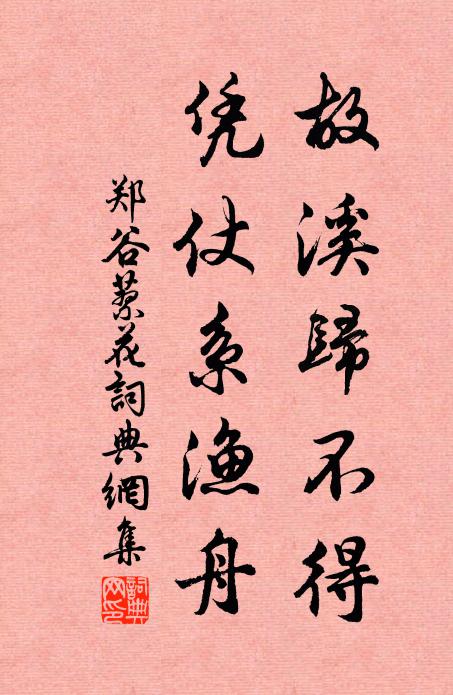 故溪歸不得
凭仗系漁舟
郑谷蓼花詞典網集
詞典网印